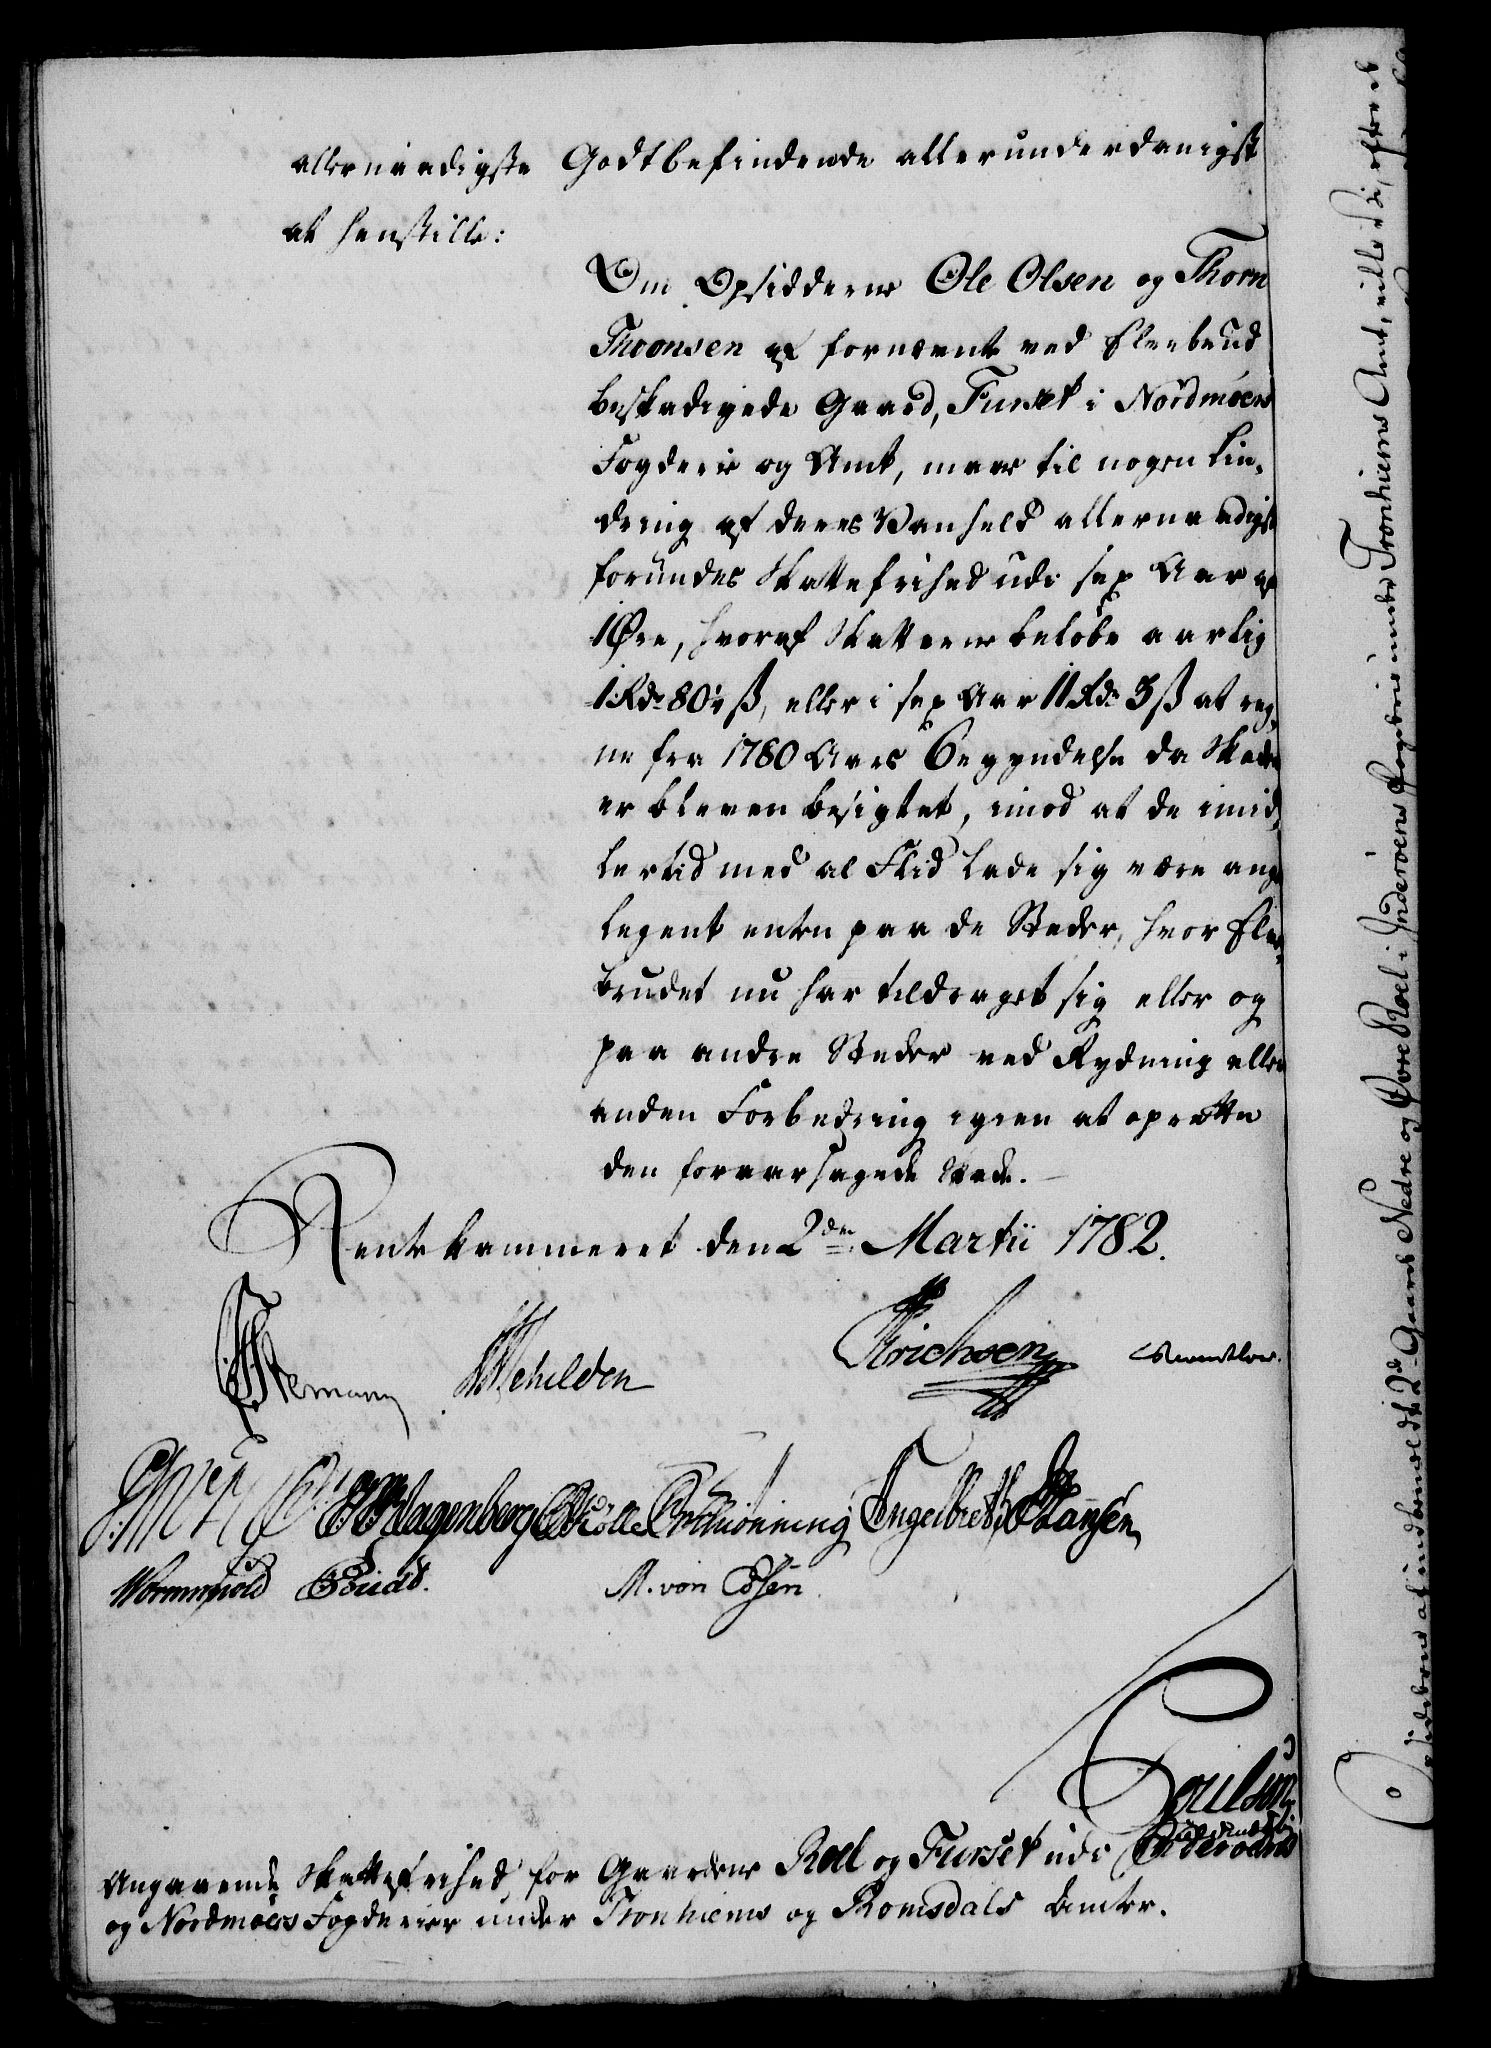 allernaadigste Godtbefindende allerunderdanigst
at henstille:
Om Opsidderne Ole Olsen og Thorn
Thoonsen af fornævnte ved Elvebrud
beskadigede Gaard, Furset i Nordmøers
Fogderie og Amt, maae til nogen Lin-
dring af deres Vanheld allernaadigst
forundes Skattefrihed udi sex Aar af
1 Øre, hvoraf Skatterne beløbe aarlig
1 Rdr 80½ ß, eller i sex Aar 11 Rdr 3 ß at reg-
ne fra 1780 Aars Begyndelse da Skaden
er bleven besigtet, imod at de imid-
lertid med al Flid lade sig være ange
legent enten paa de Steder, hvor Elve-
brudet nu har tildraget sig eller og
paa andre Steder ved Rydning eller
anden Forbedring igien at oprette
den foraarsagede Skade.
Rentekammeret den 2den Martii 1782.
Stemann Schilden Erichsen
Wagenberg Mølle Schiønning Engelbreth Hansen
Wormskiold M. von Essen
Poulsen
Angaaende Skattefrihed for Gaardene Roel og Furset udi Inderøens
og Nordmøers Fogderier under Tronhiems og Romsdals Amter.
Opsidderne af indbemeldte 2de Gaarde Nedre og Øvre Roel i Inderøens Fogderie under Tronhiems Amt, ville Vi, efter et